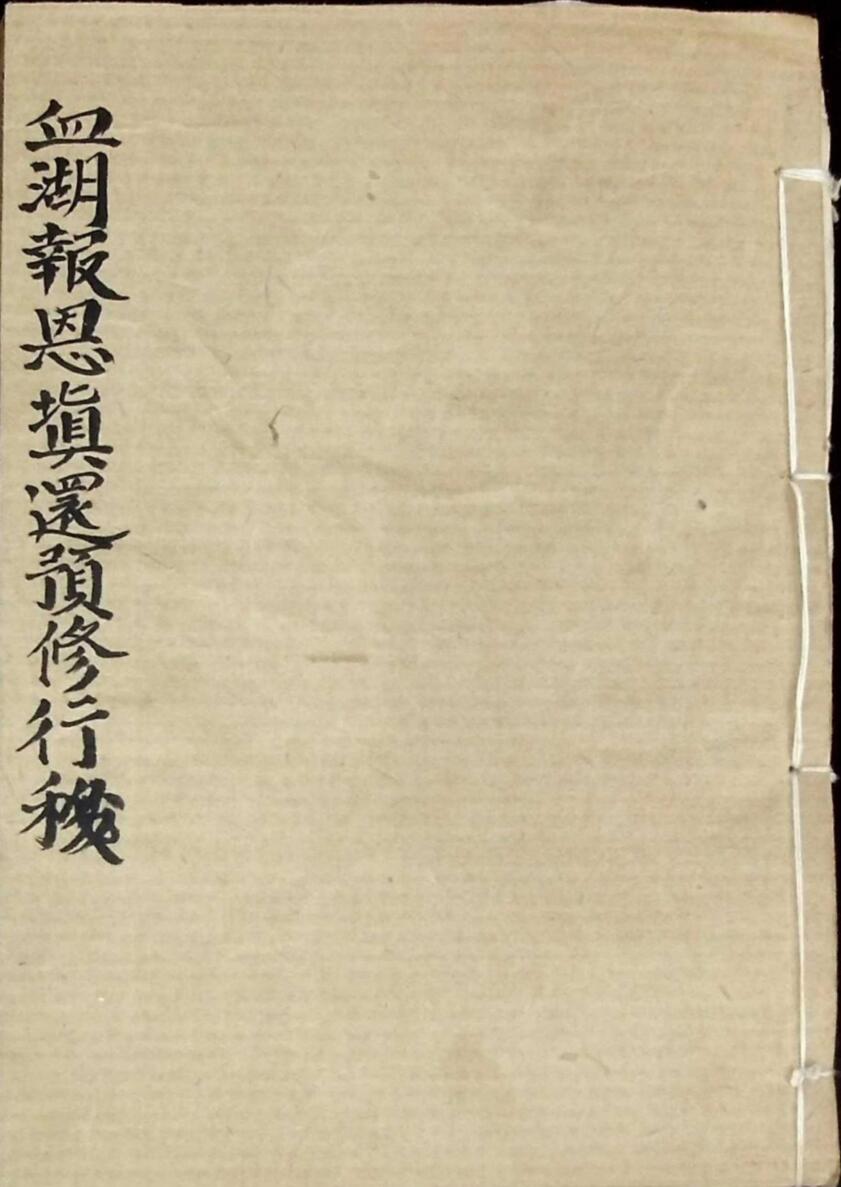 血湖報恩塡還預修行移